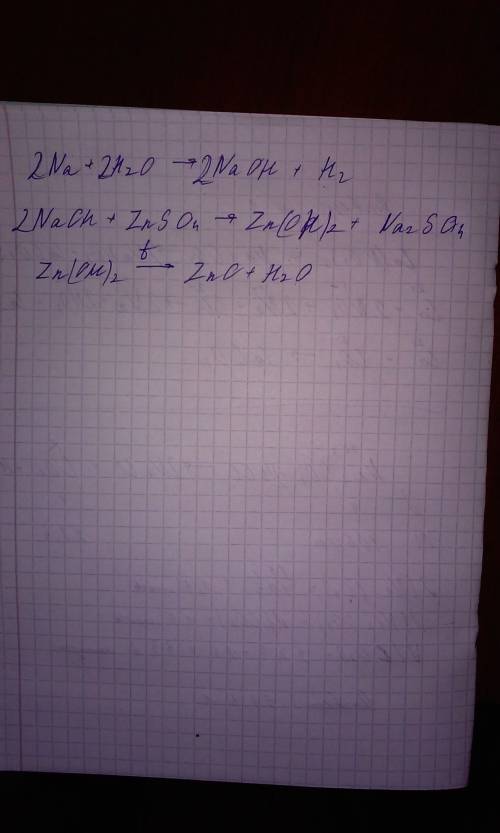 2Na + 2H₂O → 2NaOH + H₂
2NaOH + ZnSO₄ → Zn(OH)₂ + Na₂SO₄
Zn(OH)₂ →ᵗ ZnO + H₂O